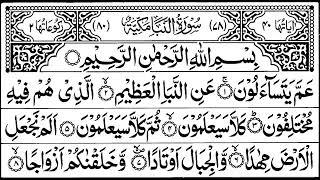 اٰیَاتُهَا ٤٠ (٧٨) سُوْرَةُ النَّبَاِ مَكِّيَّةٌ (٨٠) رُكُوْعَاتُهَا ٢
بِسْمِ اللّٰهِ الرَّحْمٰنِ الرَّحِيْمِ
عَمَّ يَتَسَآءَلُوْنَ ۚ عَنِ النَّبَاِ الْعَظِيْمِ ۙ الَّذِیْ هُمْ فِيْهِ
مُخْتَلِفُوْنَ ؕ كَلَّا سَيَعْلَمُوْنَ ۙ ثُمَّ كَلَّا سَيَعْلَمُوْنَ ۟ اَلَمْ نَجْعَلِ
الْاَرْضَ مِهٰدًا ۙ وَّالْجِبَالَ اَوْتَادًا ۪ۙ وَّخَلَقْنٰكُمْ اَزْوَاجًا ۙ